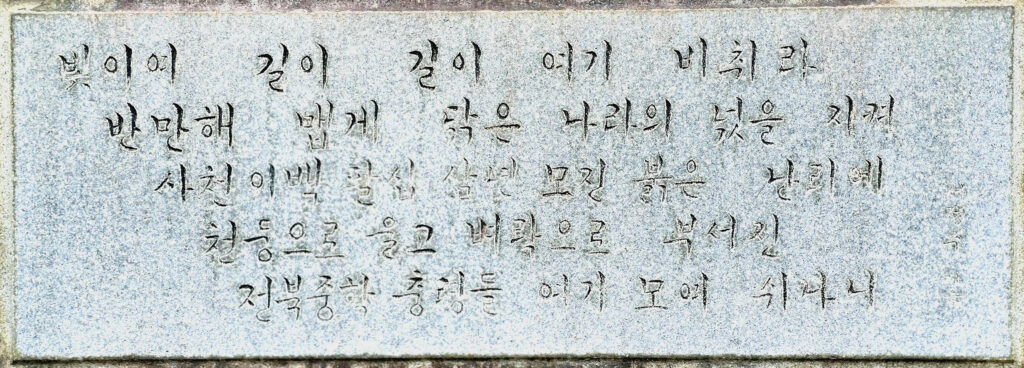 빛이여 길이 길이 여기 비취라
반만해 맵게 닦은 나라의 넋을 지켜
사천이백 팔십 삼년 모진 붉은 난리에
천둥으로 울고 벼락으로 부서진
전북중학 충령들 여기 모여 쉬나니